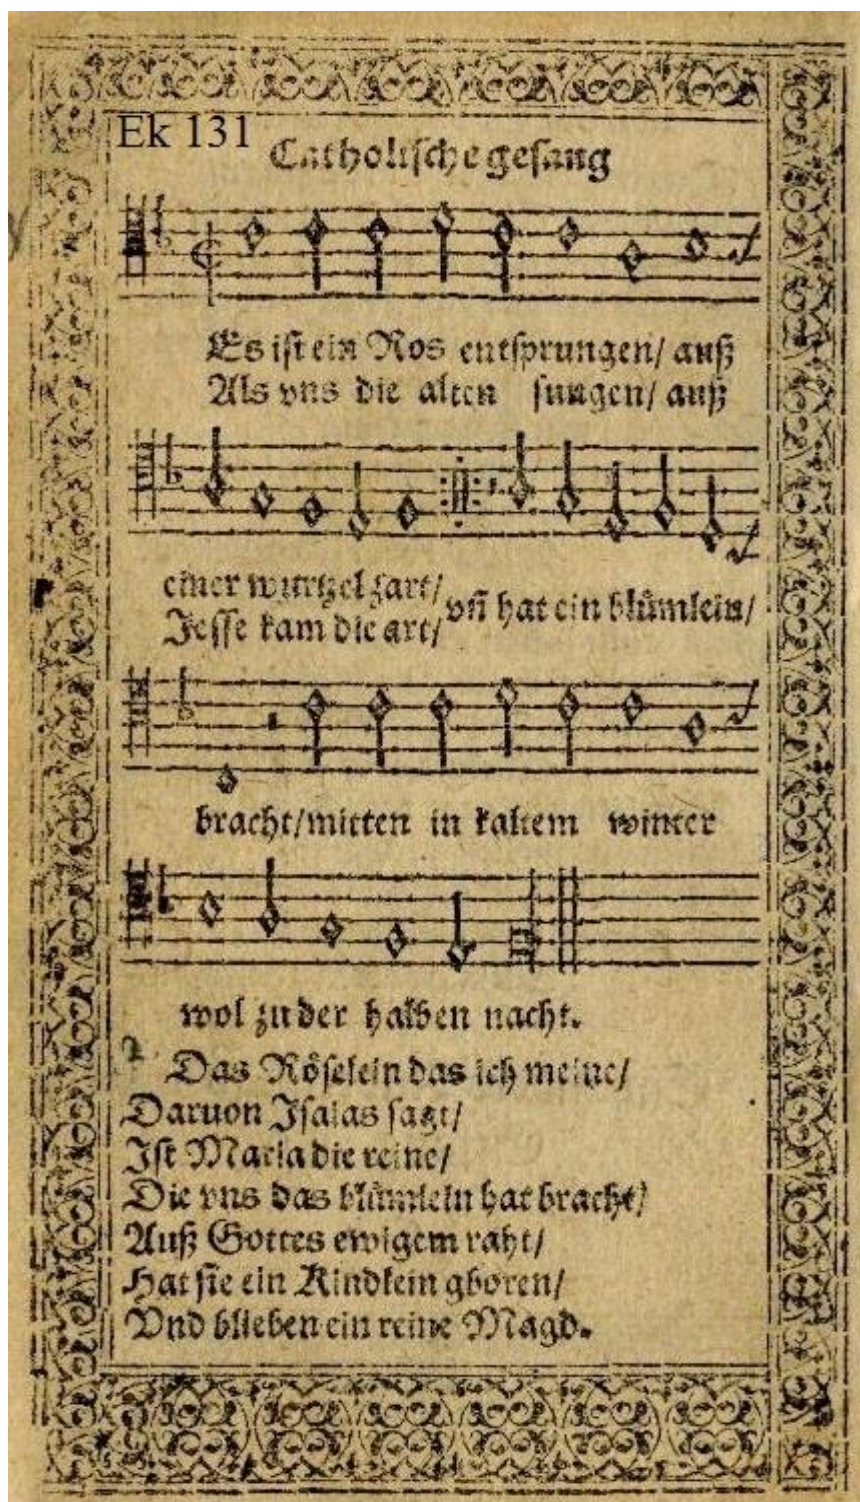 Ek 131
Catholische gesang
Es ist ein Ros entsprungen/ auß
Als vns die alten sungen/ auß
einer wurtzel zart/
Jesse kam die art/
vñ hat ein blůmlein/
bracht/mitten in kaltem winter
wol zu der halben nacht.
2
Das Röselein das ich meine/
Daruon Isaias sagt/
Ist Maria die reine/
Die vns das blůmlein hat bracht/
Auß Gottes ewigem raht/
Hat sie ein Kindlein gboren/
Vnd blieben ein reine Magd.